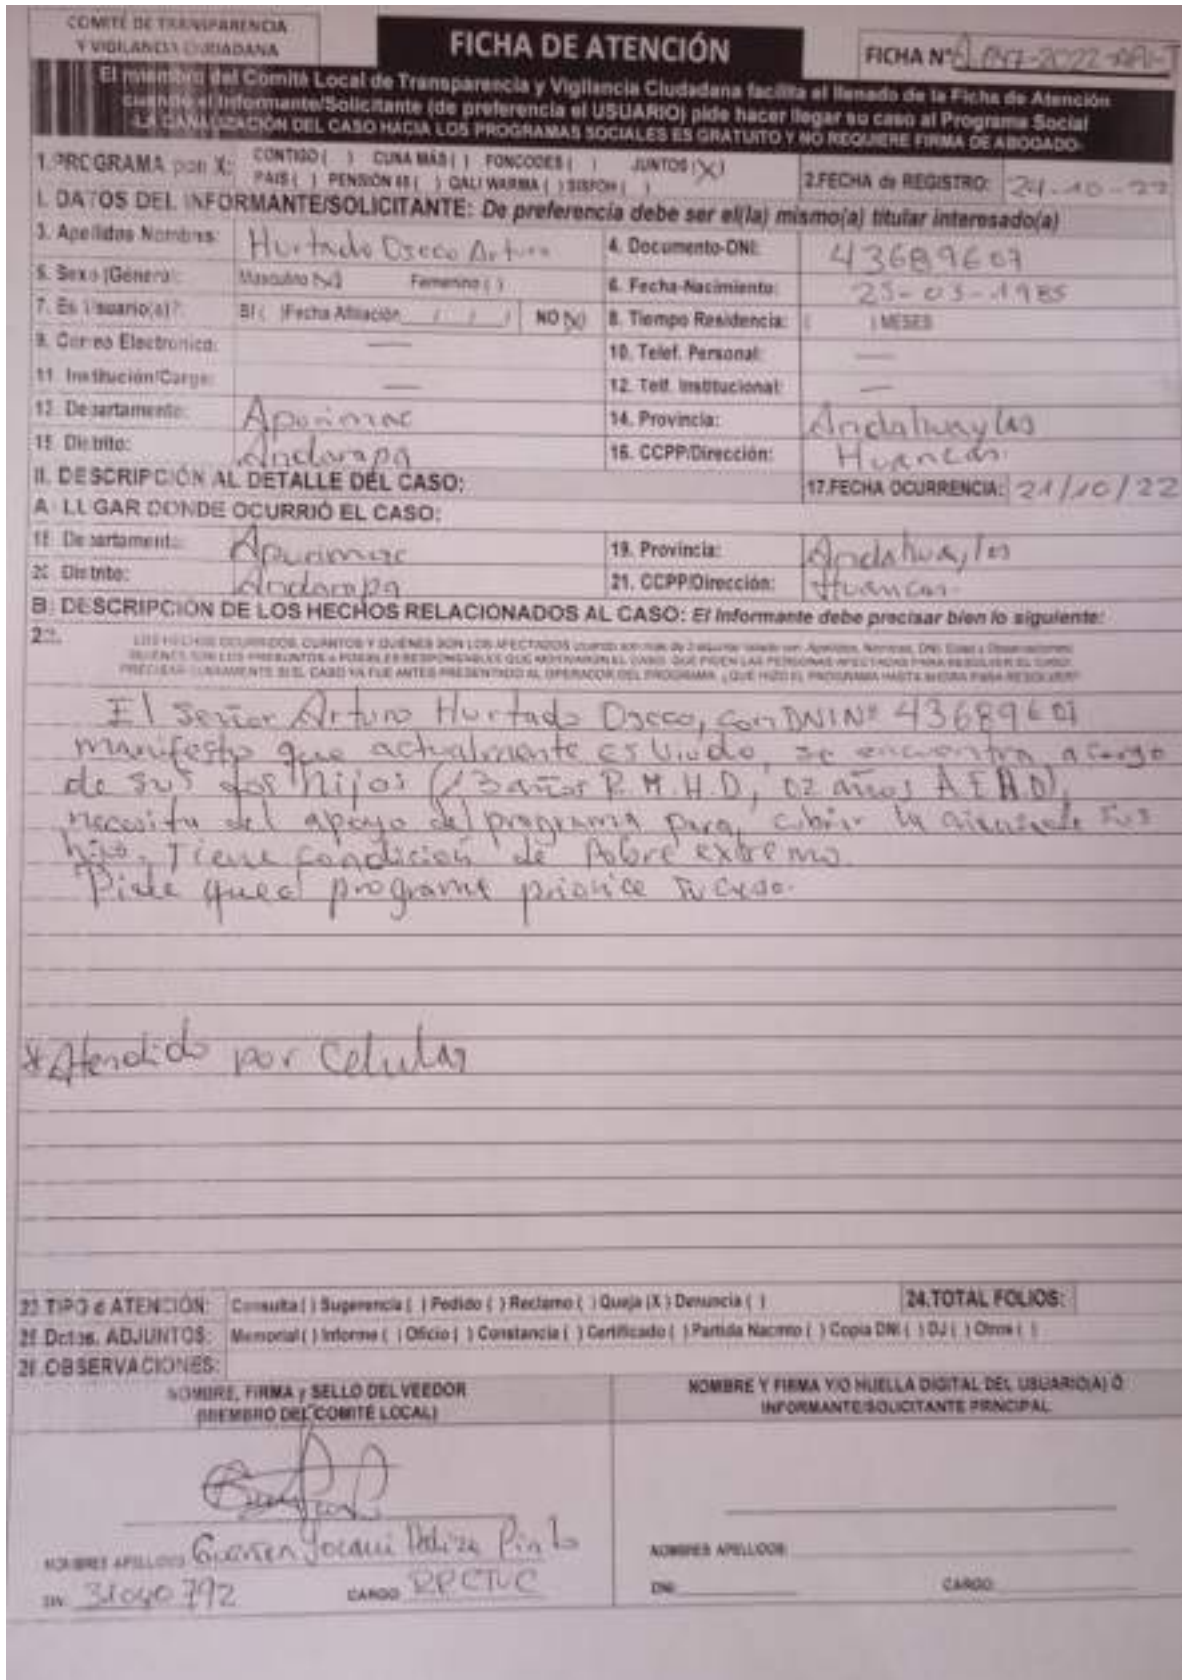 COMITÉ DE TRANSPARENCIA
Y VIGILANCIA CIUDADANA
FICHA DE ATENCIÓN
FICHA N°
El miembro del Comité Local de Transparencia y Vigilancia Ciudadana facilita el llenado de la Ficha de Atención
cuando el Informante/Solicitante (de preferencia el USUARIO) pide hacer llegar su caso al Programa Social
-LA CANALIZACIÓN DEL CASO HACIA LOS PROGRAMAS SOCIALES ES GRATUITO Y NO REQUIERE FIRMA DE ABOGADO-
1.PROGRAMA pon X: CONTIGO ( ) CUNA MÁS ( ) FONCODES ( ) JUNTOS (X)
PAIS ( ) PENSIÓN 65 ( ) QALI WARMA ( ) SISFOH ( )
2.FECHA de REGISTRO: 24-10-22
I. DATOS DEL INFORMANTE/SOLICITANTE: De preferencia debe ser el(la) mismo(a) titular interesado(a)
3. Apellidos Nombres: Hurtado Oscco Arturo 4. Documento-DNI: 43689607
5. Sexo (Género): Masculino (X) Femenino ( ) 6. Fecha-Nacimiento: 25-03-1985
7. Es Usuario(a)?: SI ( )Fecha Afiliación / / NO (X) 8. Tiempo Residencia: ( ) MESES
9. Correo Electronico: — 10. Telef. Personal: —
11. Institución/Cargo: — 12. Telf. Institucional: —
13. Departamento: Apurimac 14. Provincia: Andahuaylas
15. Distrito: Andarapa 16. CCPP/Dirección: Huancas.
II. DESCRIPCIÓN AL DETALLE DEL CASO: 17.FECHA OCURRENCIA: 21/10/22
A. LUGAR DONDE OCURRIÓ EL CASO:
18. Departamento: Apurimac 19. Provincia: Andahuaylas
20. Distrito: Andarapa 21. CCPP/Dirección: Huancas.
B. DESCRIPCIÓN DE LOS HECHOS RELACIONADOS AL CASO: El Informante debe precisar bien lo siguiente:
22.
El señor Arturo Hurtado Oscco, con DNI N° 43689607
manifesto que actualmente es Viudo, se encuentra a cargo
de sus dos hijos (13 años R.M.H.D, 02 años A.E.H.D),
necesita del apoyo del programa para, cubrir la de sus
hijo. Tiene condicion de Pobre extremo.
Pide que el programa priorice su caso.
*Atendido por Celular
23.TIPO d ATENCIÓN: Consulta ( ) Sugerencia ( ) Pedido ( ) Reclamo ( ) Queja (X) Denuncia ( ) 24.TOTAL FOLIOS:
25.Dctos. ADJUNTOS: Memorial ( ) Informe ( ) Oficio ( ) Constancia ( ) Certificado ( ) Partida Nacmto ( ) Copia DNI ( ) DJ ( ) Otros ( )
26.OBSERVACIONES:
NOMBRE, FIRMA y SELLO DEL VEEDOR
(MIEMBRO DEL COMITÉ LOCAL)
NOMBRE Y FIRMA Y/O HUELLA DIGITAL DEL USUARIO(A) O
INFORMANTE/SOLICITANTE PRINCIPAL
NOMBRES APELLIDOS:
DNI: 31040792 CARGO:
NOMBRES APELLIDOS:
DNI: CARGO: